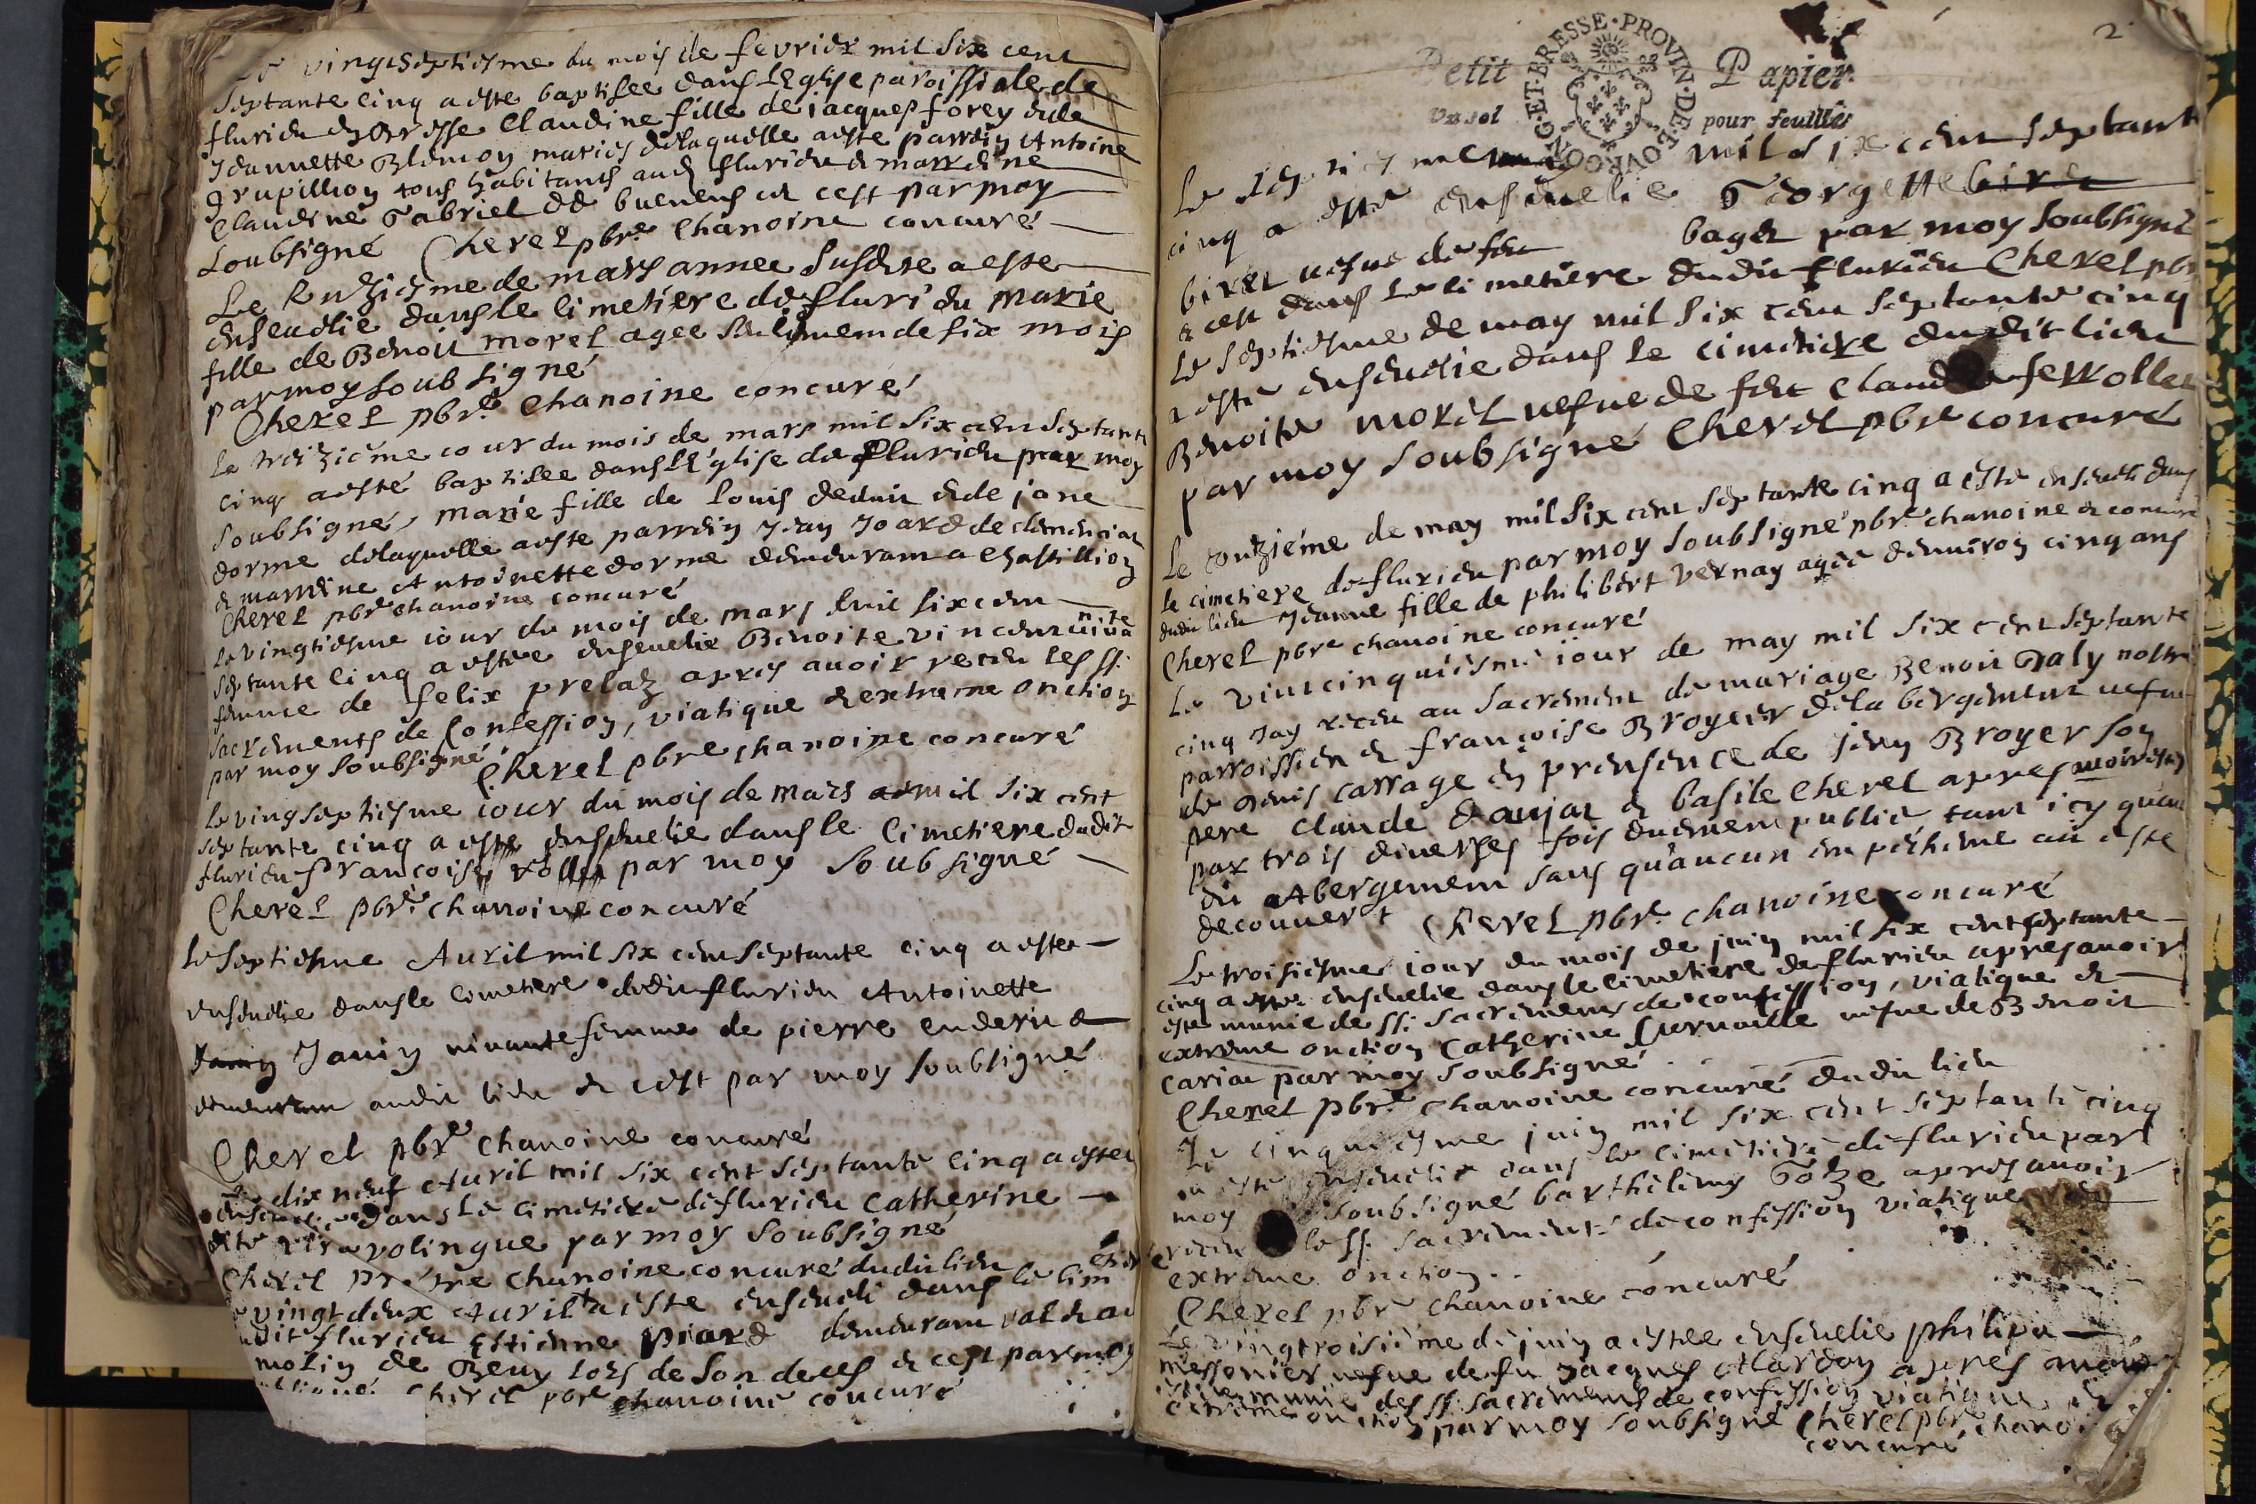 vingtseptiesme du mois de fevrier mil six cent
septante cinq a esté baptisee dans l'Eglise paroissiale de
flurieu en Bresse Claudine fille de jacques forey et de
Jeannette mariés de laquelle a esté parrein Antoine
grapillion tous habitants aud flurieu et marrene
Claudine Gabriel de buenens et cest par moy
soubsigné Cherel pbre Chanoine concuré
Le unzieme de mars annee susdite a este
ensevelie dans le cimetiere de flurieu Marie
fille de Benoit morel agee seulement de six mois
par moy soub signé
Cherel pbre Chanoine concuré
le treizième iour du mois de mars mil six cent septante
cinq a esté baptisee dans l'Eglise de flurieu par moy
soubsigné, marie fille de louis et de jane
dorme de laquelle a este parrein Jean Joard de clemenciat
et marrine Antoinette dorme demeurant a Chastillion
Cherel pbre chanoine concuré
le vingtiesme iour du mois de mars mil six cent
septante cinq a estee ensevelie Benoite vincent
femme de felix prelaz apres avoir receu les ss:
sacrements de Confession, viatique et extreme onction
par moy soubsigné Cherel pbre chanoine concuré
le vingseptiesme iour du mois de mars mil six cent
septante cinq a este ensevelie dans le cimetiere dudit
flurieu francoise par moy soubsigné
Cherel pbre: chanoine concuré
le septiesme Avril mil six cent septante cinq a estee
ensevelie dans le cometiere dudit flurieu Antoinette
Janin vivante femme de pierre
demeurant audit lieu et cest par moy soubsigné
Cherel pbre chanoine concuré
dix neuf Avril mil six cent septante cinq a estee
dans le cimetiere de flurieu Catherine
par moy soubsigné
Cherel prestre Chanoine concuré dudit lieu
vingt deux Avril a este enseveli dans le cim
flurieu Estienne piard demeurant
molin de lors de son deces et cest par moy
Cherel pbre chanoine concuré
2
Petit Papier
Un sol pour feuille
BOVRGONG·ET·BRESSE·PROVIN·DE·
Le mil six cent septante
cinq a esté ensevelie Georgette
biret vefue de feu baget par moy soubsigné
et cest dans le cimetiere dudit flurieu Cherel pbre
Le septiesme de may mil six cent septante cinq
a esté ensevelie dans le cimetiere dudit lieu
Benoite morel vefue de feu
par moy soubsigné Cherel pbre concuré
Le de may mil six cent septante cinq a esté enseveli dans
le cimetiere de flurieu par moy soubsigné pbre chanoine et concuré
dudit lieu Jeanne fille de philibert vernay agée denviron cinq ans
Cherel pbre chanoine concuré
Le vint cinquiesme iour de may mil six cent septante
cinq Jay receu au sacrement de mariage Benoit Galy nostre
parroissien et françoise Broyer de la bergement vefue
de denis carrage en presence de Jean Broyer son
pere Claude et basile Cherel apres
par trois diverses fois publié tant icy quau
dit Abergement sans qu'aucun empechement ait esté
decouvert Cherel pbre chanoine concuré
Le troisiesme iour du mois de juin mil six cent septante
cinq a esté ensevelie dans le cimetiere de flurieu apres avoir
esté munie de ss: sacrements de confession, viatique et
extreme onction Catherine vefue de Benoit
cariat par moy soubsigné
Cherel pbre chanoine concuré dudit lieu
Le cinquiesme juin mil six cent septante cinq
a esté ensevelie dans le cimetiere de flurieu par
moy soubsigné barthelemy apres avoir
receu les ss. sacrements de confession viatique
extreme onction.
Cherel pbre chanoine concuré
Le vingtroisième de juin a estee ensevelie philipa
messonier vefue de fu Jacques apres avoir
munie des ss. sacrements de confession viatique
extreme onction par moy soubsigné Cherel pbre chanoine
concuré